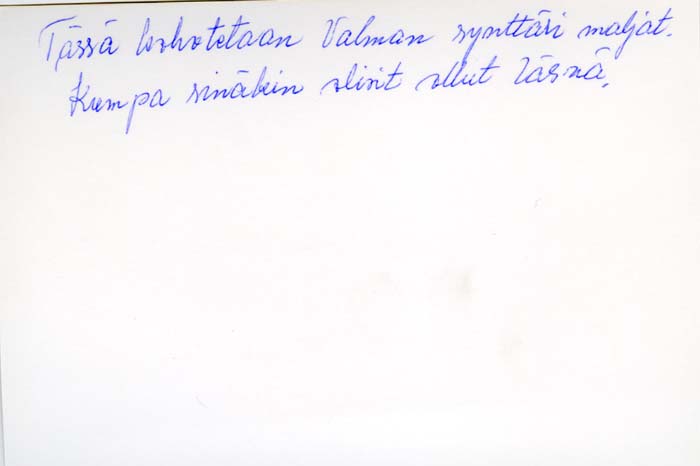 Tässä kohotetaan Valman synttäri maljat.
Kumpa sinäkin olisit ollut läsnä.